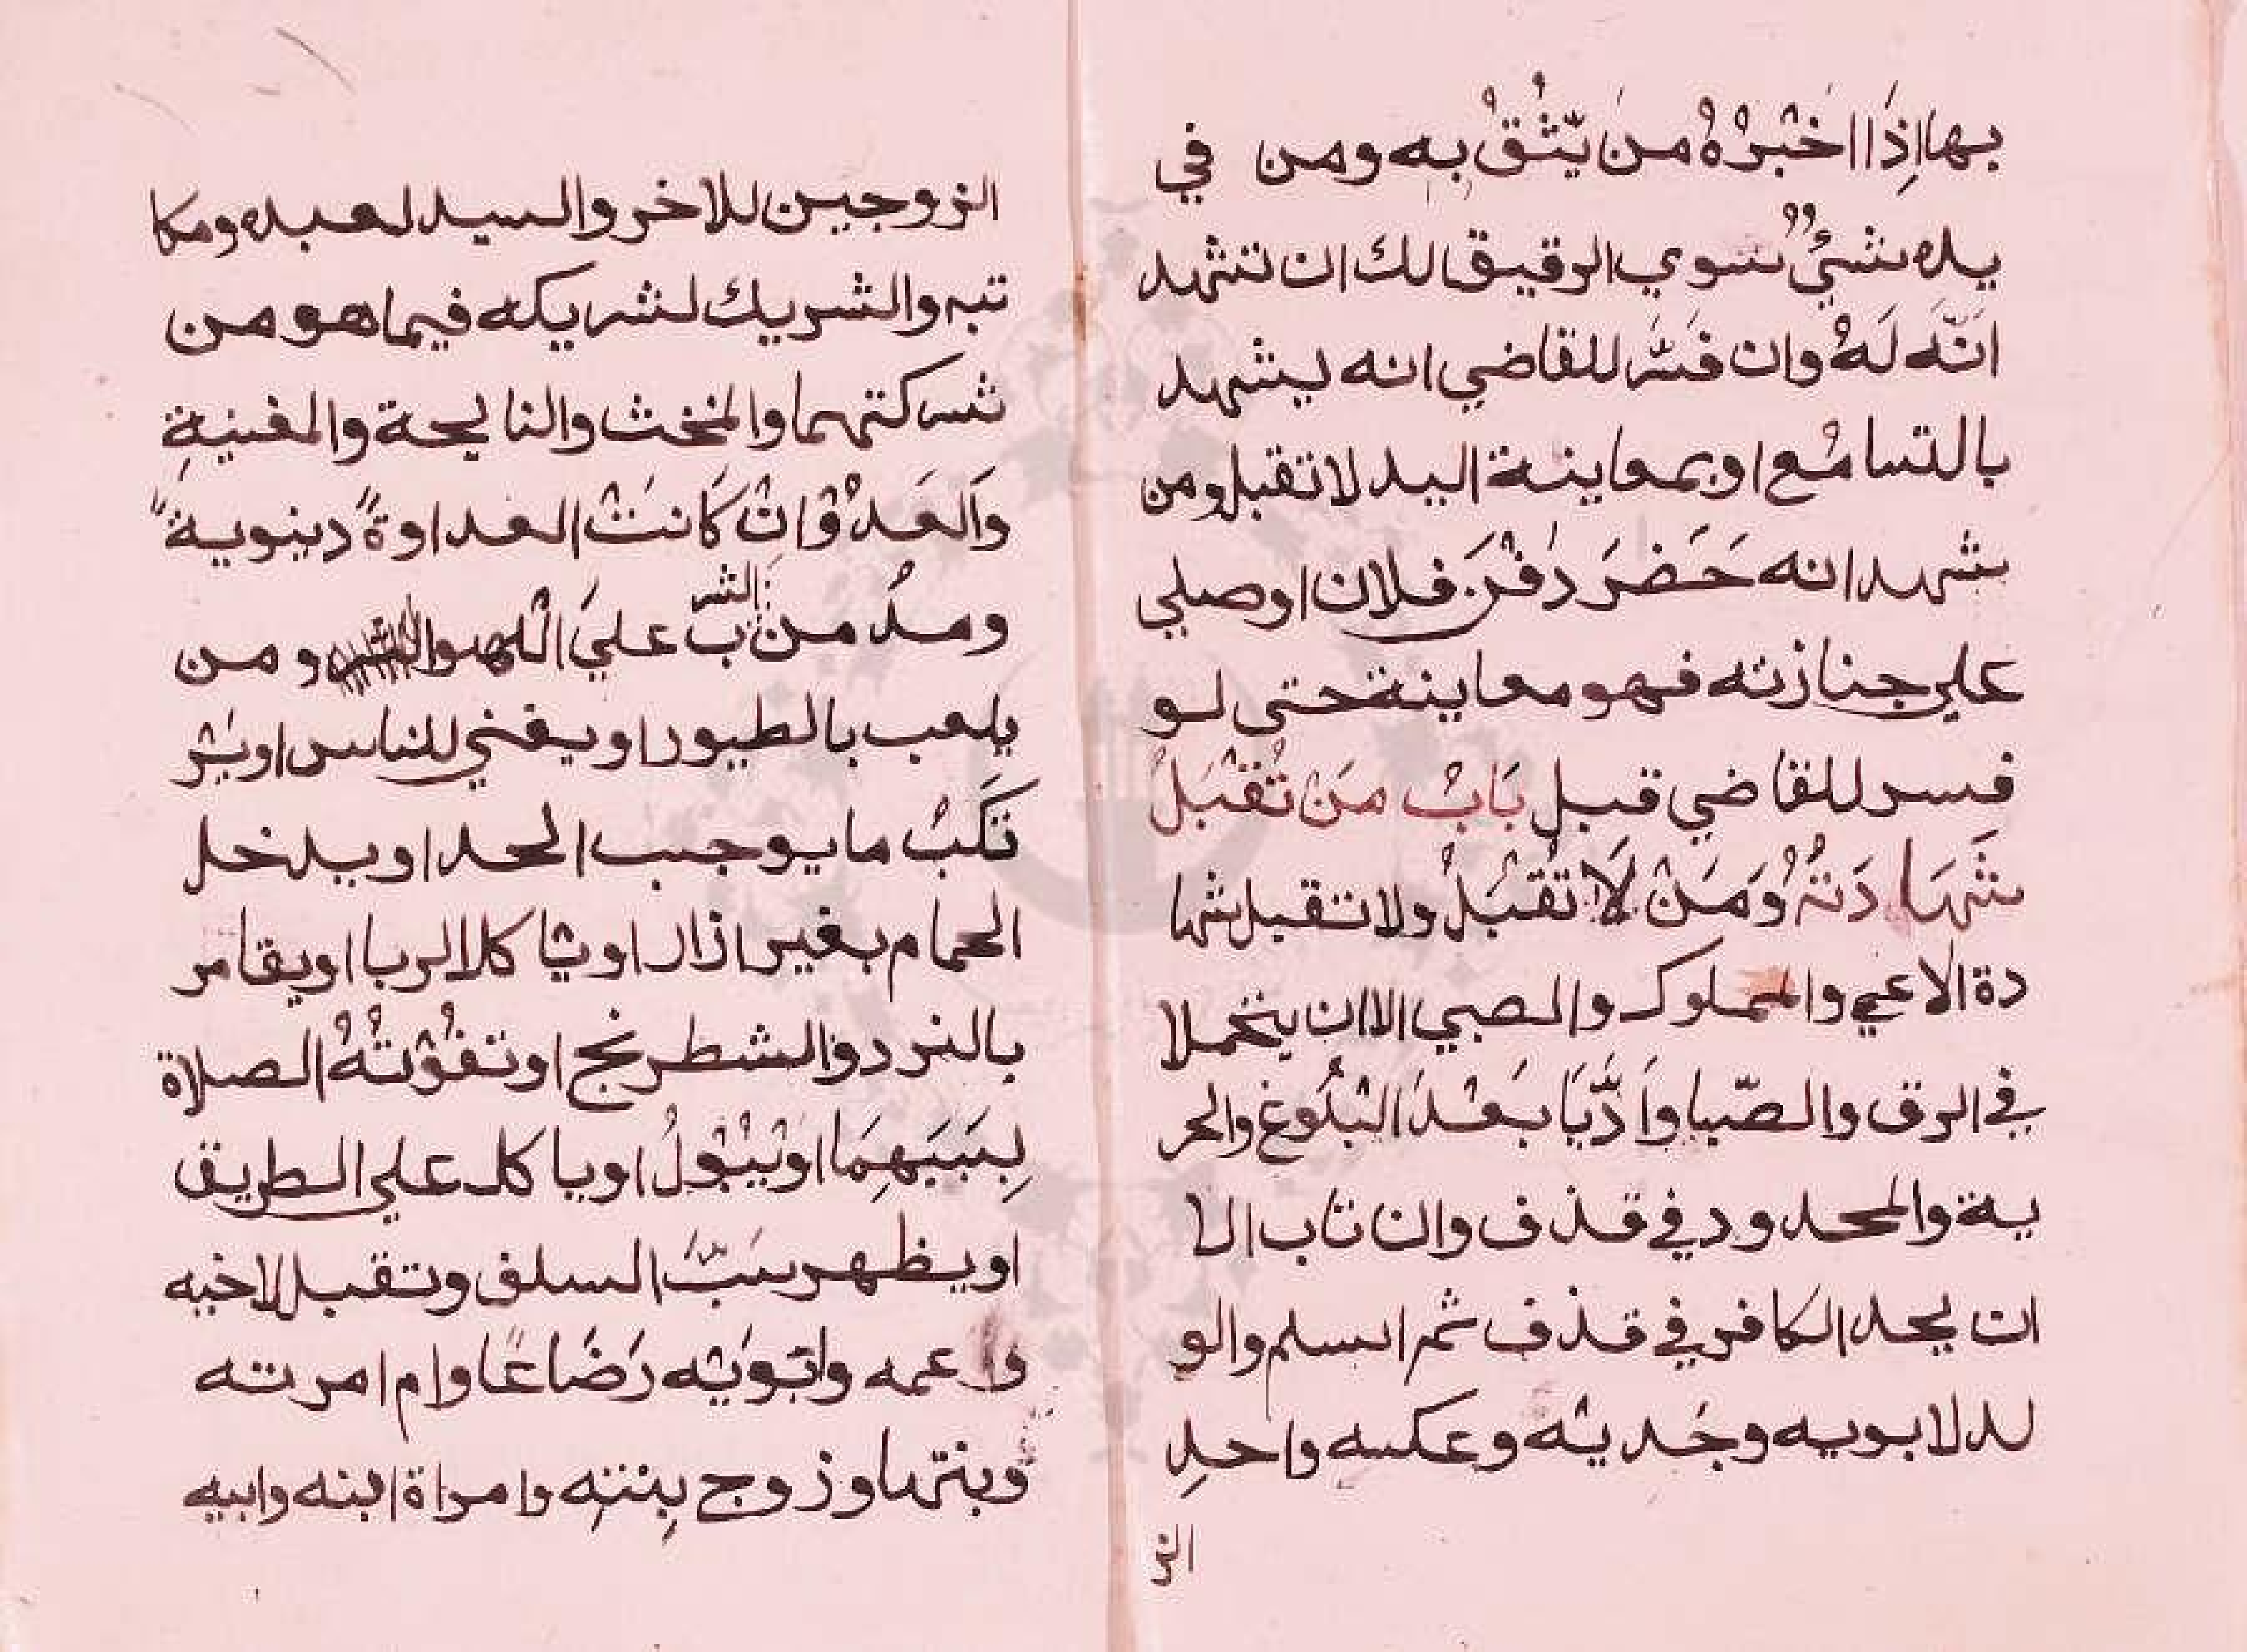 بها اِذَا اخْبَرْهُ منَ يّثْقُ به ومن في
يده شئُ سوي الرقيق لك ان تشهد
انَّه لَهُ وان فسَّر للقاضي انه ليشهد
بالتسامُع او بمعاينة اليد لا تقبل ومن
شهد انه حَضرَ دفْنَ فلان او صلي
علي جنازته فهو معاينة حتى لو
فسر للقاضي قبل بَابْ منَ تُقْبَلُ
شَهَا دَتهُ وَمَنْ لَا تُقْبَلُ ولا تقبل شها
دة الاعمي والمملوك والصبي الا ان يتحملا
في الرق والصّبا واَدَّيَا بَعْدَ البُلُوغ والحر
ية والمحدود في قذف وان تاب الا
ان يحد الكافر في قذف ثم اسلم والو
لد لابويه وجَديْه وعكسه واحدِ
الز
الزوجين للاخر والسيد لعبده ومكا
تبه والشريك لشريكه فيما هو من
شركتهما والمخنث والنايحة والمغنيةِ
وَالعَدُوْ اِنْ كَانتْ العداوةً دينوية
ومدُمن الشر ب عليَ اللهو ومن
يلعب بالطيور او يغني للناس او يَر
تَكَبُ ما يوجب الحد او يدخل
الحمام بغير ازار او يا كلا الربا او يقامر
بالنرد والشطرنج او تفُوْتهُ الصلاة
لِسَبَبَهِمَا اوْ يَبُوْلُ او يا كل علي الطريق
او يظهر سَبَّ السلف وتقبل لاخيه
و عمه وابَويْه رَضَاعًا وام امرته
وبنتها وزوج بِنتِه وامراة ابنه وابيه